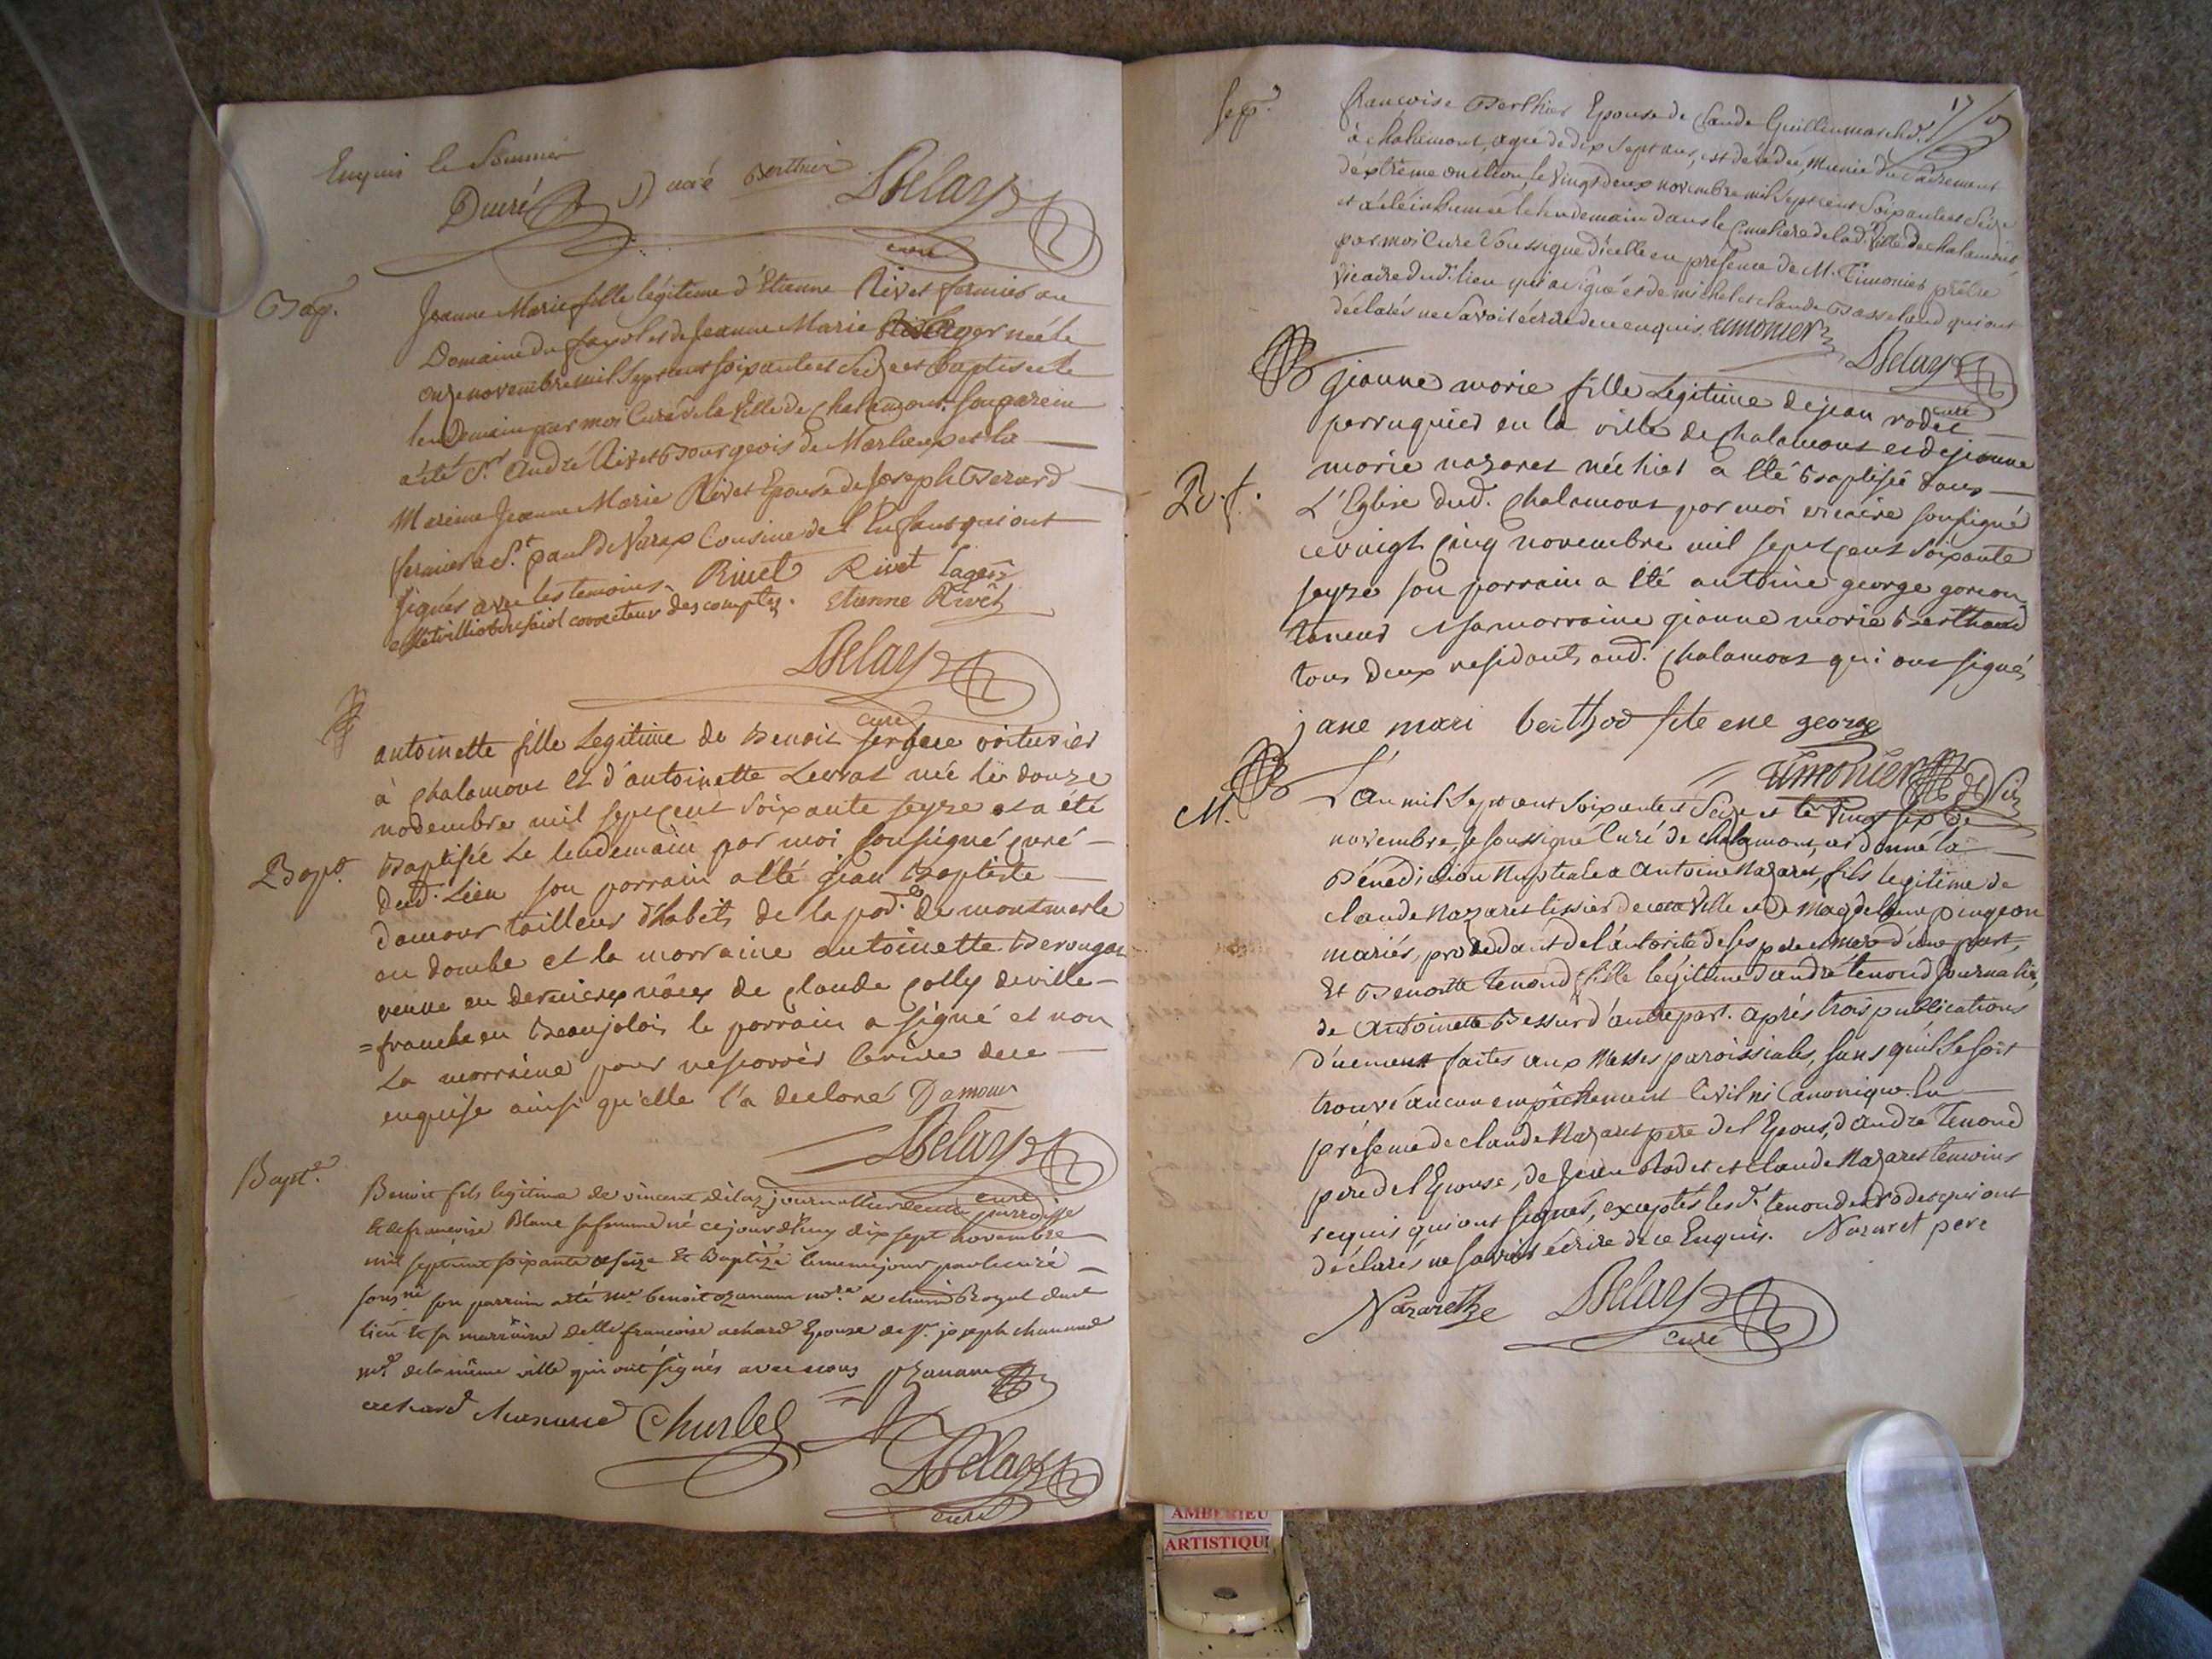 Enquis le Sommier
Ducré Ducré Berthier Delay
curé
Bap.
Jeanne Marie fille légitime d'Etienne Rivet fermier au
Domaine du et de Jeanne Marie Lager née le
onze novembre mil sept cent soixante et seize et baptisée le
lendemain par moi Curé de la ville de Chalamont. son parein
a été Sr. André Rivet Bourgeois de Marlieux et la
Mareine Jeanne Marie Rivet Epouse de Joseph Berard
fermier a St. paul de Varax Cousine de l'Enfant qui ont
signés avec les temoins. Rivet Rivet Lager
correcteur des comptes. Etienne Rivet
Delay
curé
antoinette fille Legitime de Benoit voiturier
à Chalamont et d'antoinette Levrat née le douze
novembre mil sept cent soixante seyze et a été
Bapt. Baptisée le lendemain par moi soussigné curé
dud. Lieu son parrain a été jean Baptiste
damour tailleur d'habits de la pod. de montmerle
en dombe et la marraine antoinette
veuve en dernieres nôces de claude Colly de ville-
=franche en Beaujolois le parrain a signé et non
La marraine pour ne sçavoir écrire de ce
enquise ainsi qu'elle l'a declaré Damour
Delay
curé
Bapt.
Benoit fils legitime de vincent journallier de cette parroisse
et de francoise Blanc sa femme né ce jourd'huy dix sept novembre
mil sept cent soixante et seize et Baptizé le meme jour par le curé
sous.né son parrain a été me. benoit ozanam nore. et Royal dud.
lieu et sa marraine delle francoise achard Epouse de sr. joseph chanand
md. de la même ville qui ont signés avec nous Ozanam
achard Chanand Charles
Delay
curé
17
Sep.
francoise Berthier Epouse de Claude Guillin march.
à chalamont, agée de dix sept ans, est décédée, Munie du Sacrement
d'extrême onction, le vingt deux novembre mil sept cent soixante et seize
et a été inhumée le lendemain dans le Cimetiere de lad. Ville de chalamont
par moi Curé Soussigné d'icelle en présence de M. Timonier prêtre
vicaire dud. lieu qui a signé et de michel et claude Basseland qui ont
déclarés ne savoir écrire de ce enquis. Timonier
Delay
curé
jeanne marie fille Legitime de jean rodet
perruquier en la ville de Chalamont et de jeanne
marie nazaret née hier a été Baptisée dans
B.t. L'Eglise dud. Chalamont par moi vicaire soussigné
ce vingt cinq novembre mil sept cent soixante
seyze son parrain a été antoine george
taneur et sa marraine jeanne marie Berthaud
tous deux residants aud. Chalamont qui ont signés
jane mari berthod george
Timonier
M.
L'an mil sept cent soixante et seize et le vingt six de
novembre, je soussigné Curé de Chalamont, ai donné la
Bénédiction Nuptiale a Antoine Nazaret, fils légitime de
claude Nazaret tissier de cette Ville et de Magdelaine pingeon
mariés, procedant de l'autorité de ses pere et mere d'une part,
Et Benoitte tenond fille légitime d'andré tenond Journalier,
de Antoinette Bessard d'autre part. aprés trois publications
duement faites aux Messes paroissiales, sans qu'il se soit
trouvé aucun empêchement Civil ni Canonique. En
présence de claude Nazaret pere de l'Epoux, d'andré tenond
pere de l'Epouse, de Jean Rodet et claude Nazaret temoins
requis qui ont signés, exceptés les d. tenond et rodet qui ont
déclarés ne savoir écrire de ce Enquis. Nazaret pere
Nazareth Delay
curé
AMBERIEU
ARTISTIQU